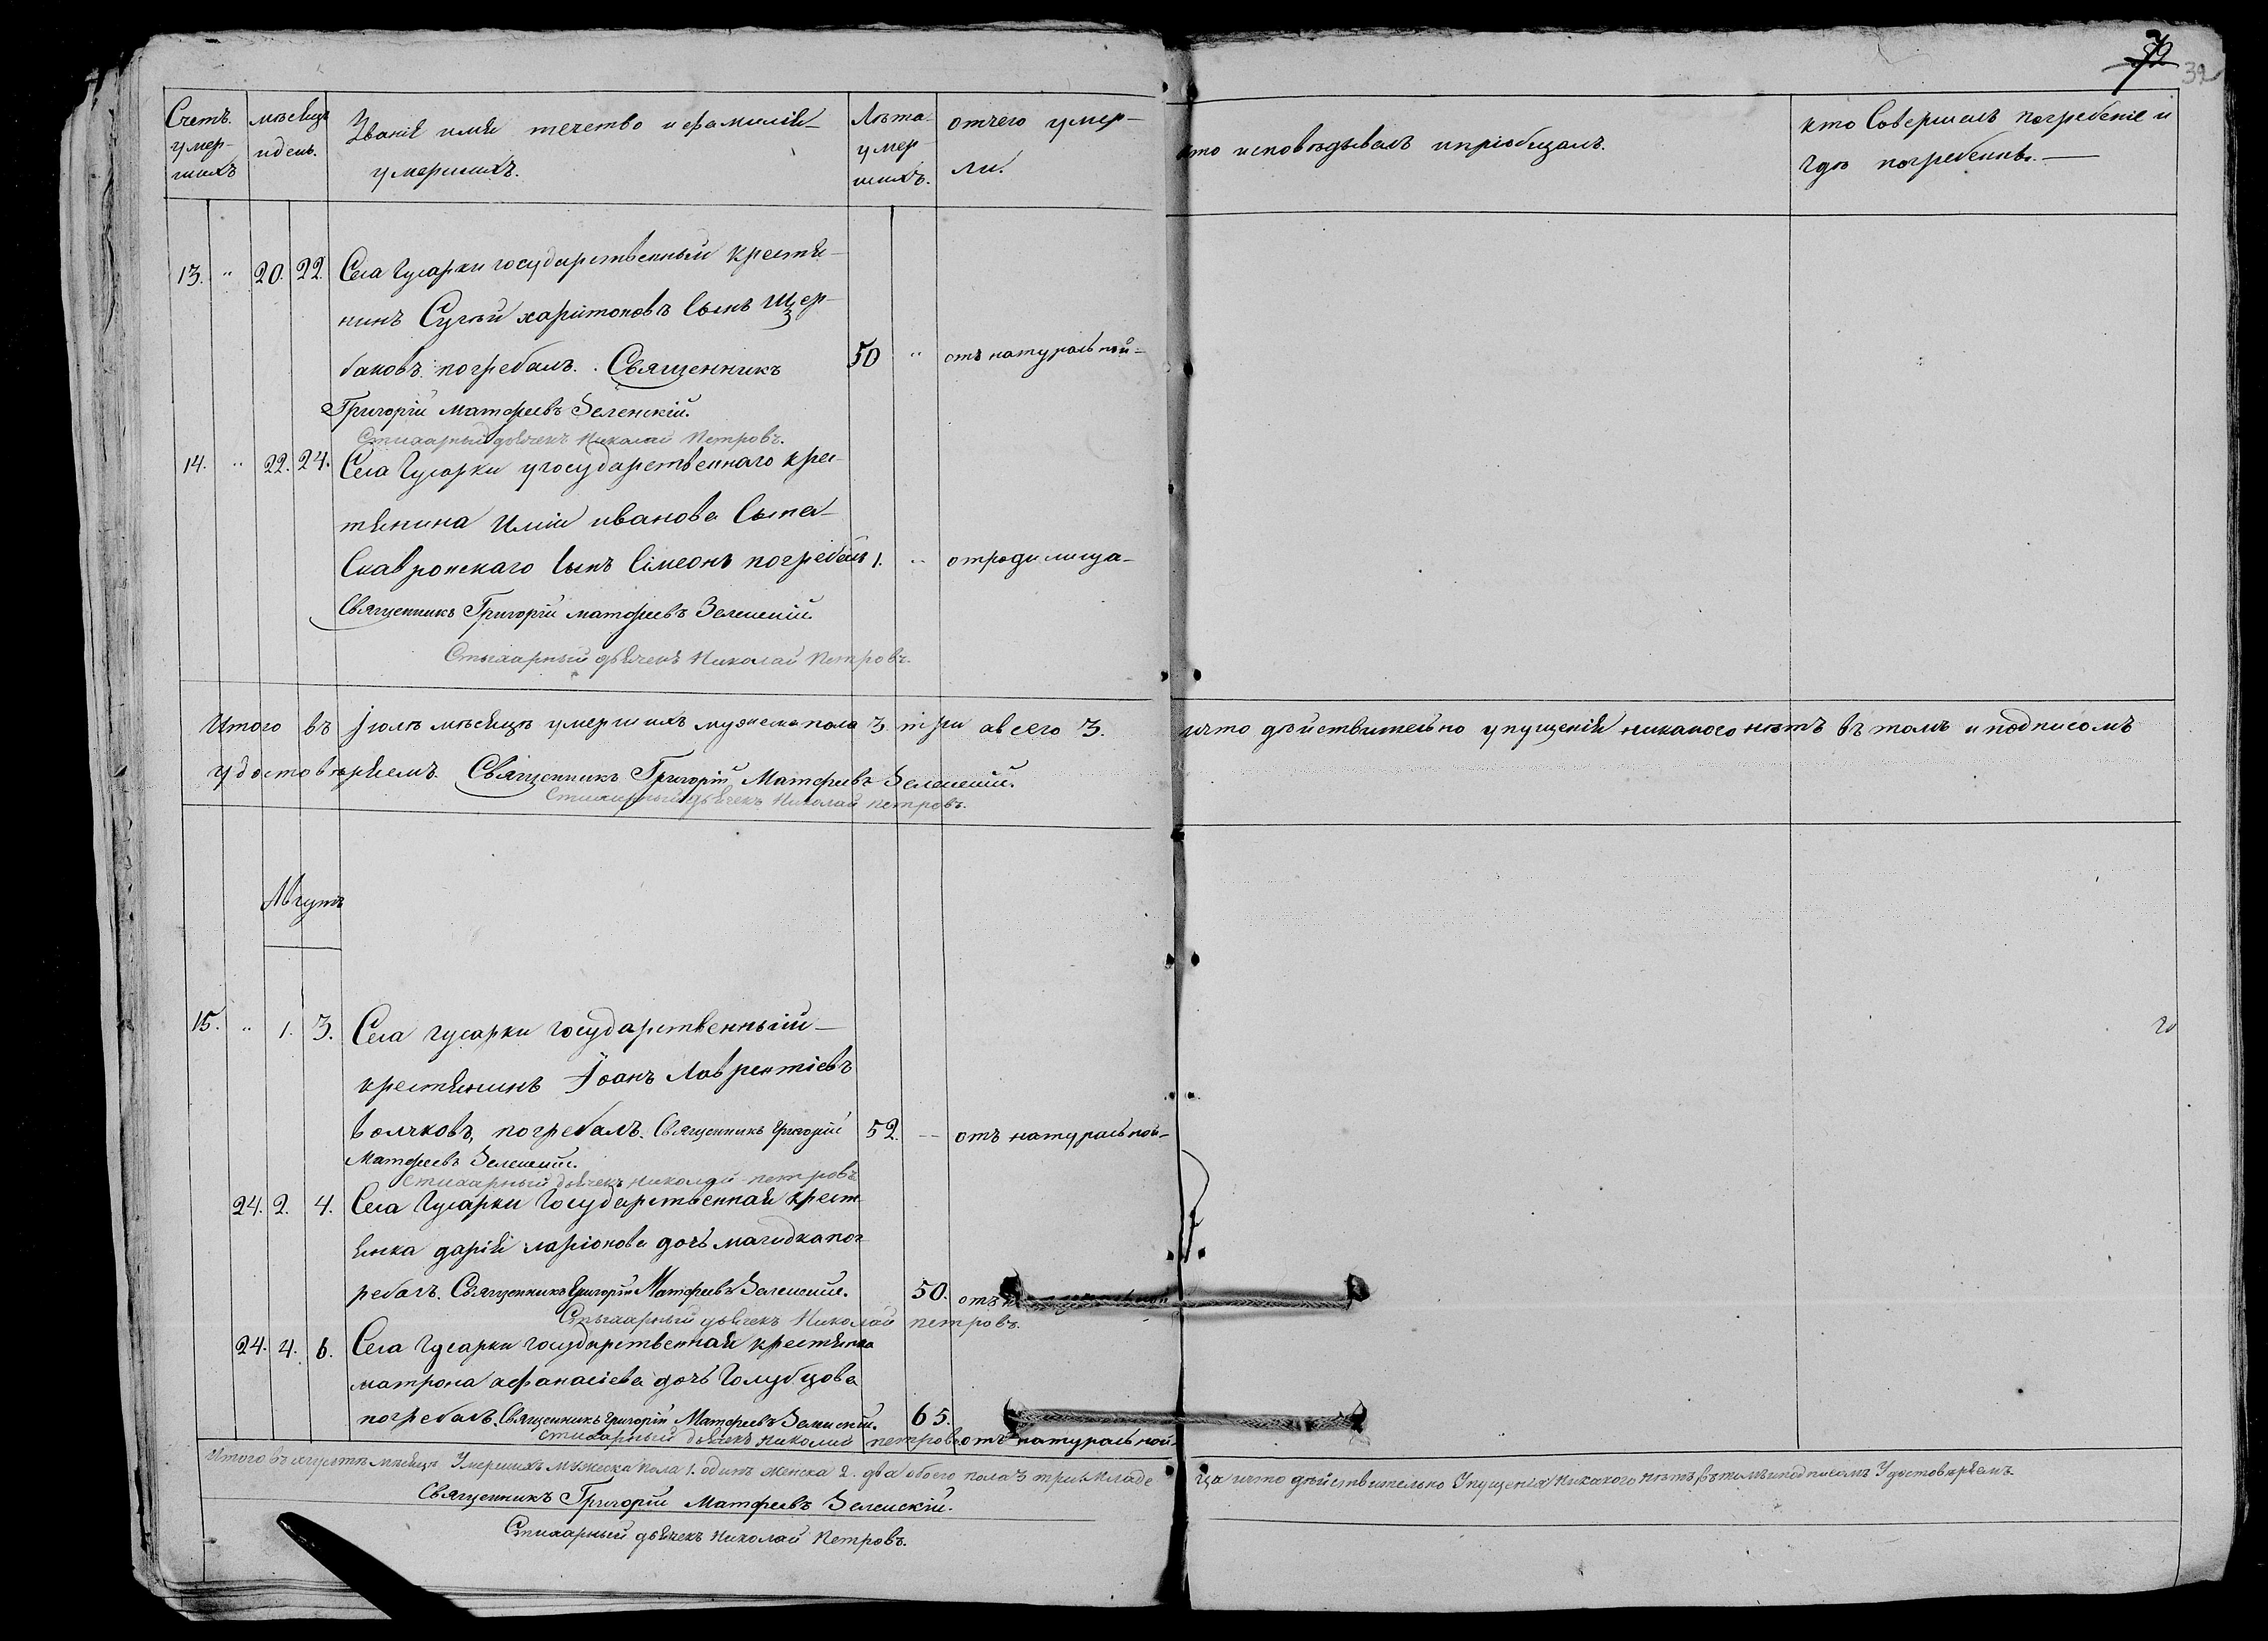 72
39
Счетъ умер- шихъ
мѣсяцъ и день.
Званія имя течество и фамилія умершихъ.
Лѣта умер шихъ.
отчего умер- ли.
кто исповѣдывалъ и пріобщалъ.
кто Совершалъ погребеніе и гдѣ погребенны.
13. " 20. 22. Села Гусарки государственный крестя-
нинъ харитоновъ Сынъ Щер-
баковъ погребалъ. Священникъ 50 " отъ натуральной
Григорій Матфеевъ Зеленскій.
Стихарный дьячекъ Николай Петровъ.
14. " 22. 24. Села Гусарки у государственнаго крес-
тянина Иліи иванова Сына
Скавронскаго Сынъ Сімеонъ погребалъ 1. " отродимица
Священникъ Григорій матфеевъ Зеленскій.
Стыхарный дьячекъ Николай Петровъ.
Итого въ Јюлѣ мѣсяцѣ умершихъ мужеска пола 3. три авсего 3. ичто дѣйствительно упущенія никакого нѣтъ въ томъ и подписомъ
удостовѣряемъ. Священникъ Григорій Матфеевъ Зеленскій.
Стихарный дьячекъ Николай петровъ.
Августъ
15. " 1. 3. Села гусарки Государственный
крестянинъ Іоанъ Лаврентіевъ
волчковъ, погребалъ. Священникъ Григорій 52. " отъ натуральной
Матфеевъ Зеленскій.
Стихарный дьячекъ николай петровъ
24. 2. 4. Села Гусарки Государственная крест
янка дарія ларіонова дочь погребалъ. Священникъ Григорій Матфеевъ Зеленскій. 50. отъ
Стыхарный дьячекъ Николай петровъ.
24. 4. 6. Села Гусарки государственная крестянка
матрона афанасіева дочь Голубцова
погребалъ. Священникъ Григорій Матфеевъ Зеленскій. 65.
стихарный дьячекъ николай петровъ отъ натуральной
Итого въ августѣ мѣсяцѣ Умершихъ Мужеска пола 1. одинъ женска 2. два обоего пола 3 три ичто дѣйствительно Упущенія Никакого нѣтъ, въ томъ и подписомъ Удостовѣряемъ.
Священникъ Григорій Матфеевъ Зеленскій.
Стихарный дьячекъ Николай Петровъ.